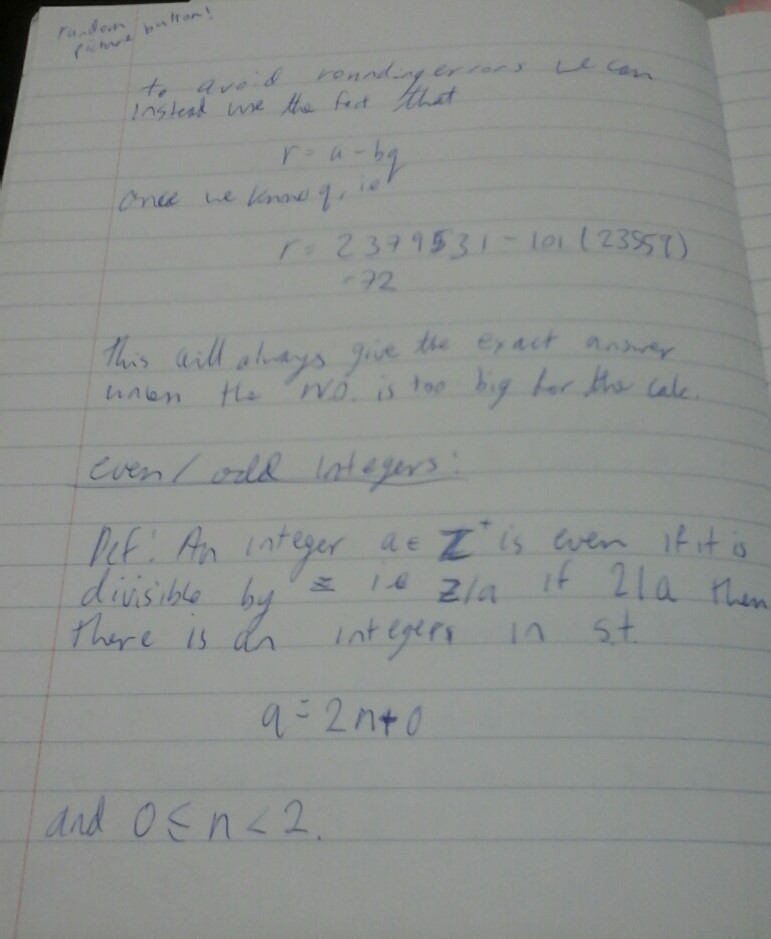 random
picture button!
to avoid rounding errors we can
instead use the fact that
r = a - bq
once we know q, ie
r = 2379531 - 101 (23559)
= 72
this will always give the exact answer
unless the NO. is too big for the calc.
even / odd integers:
Def: An integer a ∈ Z⁺ is even if it is
divisible by 2 ie 2/a if 2|a then
there is an integers n s.t.
a = 2n + 0
and 0 ≤ n < 2.